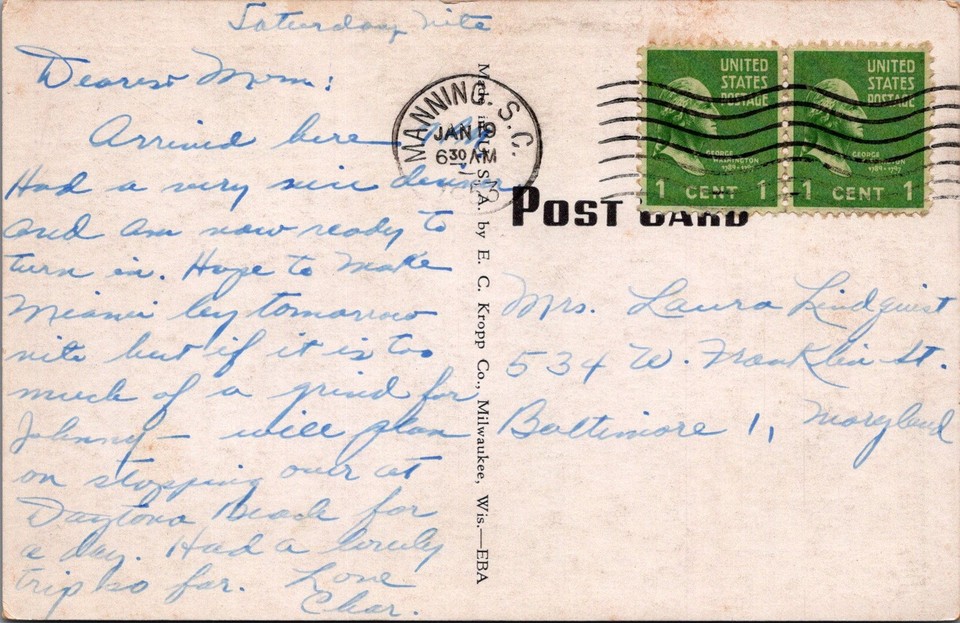 Saturday nite
Dearest Mom:
Arrived here
Had a very nice dinner
and am now ready to
turn in. Hope to make
Miami by tomorrow
nite but if it is too
much of a grind for
Johnny — will plan
on stopping over at
Daytona Beach for
a day. Had a lovely
trip so far. Love
Char.
Made in U.S.A. by E. C. Kropp Co., Milwaukee, Wis.—EBA
MANNING, S.C.
JAN 19
6 30 AM
POST CARD
UNITED
STATES
POSTAGE
GEORGE
WASHINGTON
1789-1797
1 CENT 1
UNITED
STATES
POSTAGE
GEORGE
WASHINGTON
1789-1797
1 CENT 1
Mrs. Laura Lindquist
534 W. Franklin St.
Baltimore 1, Maryland